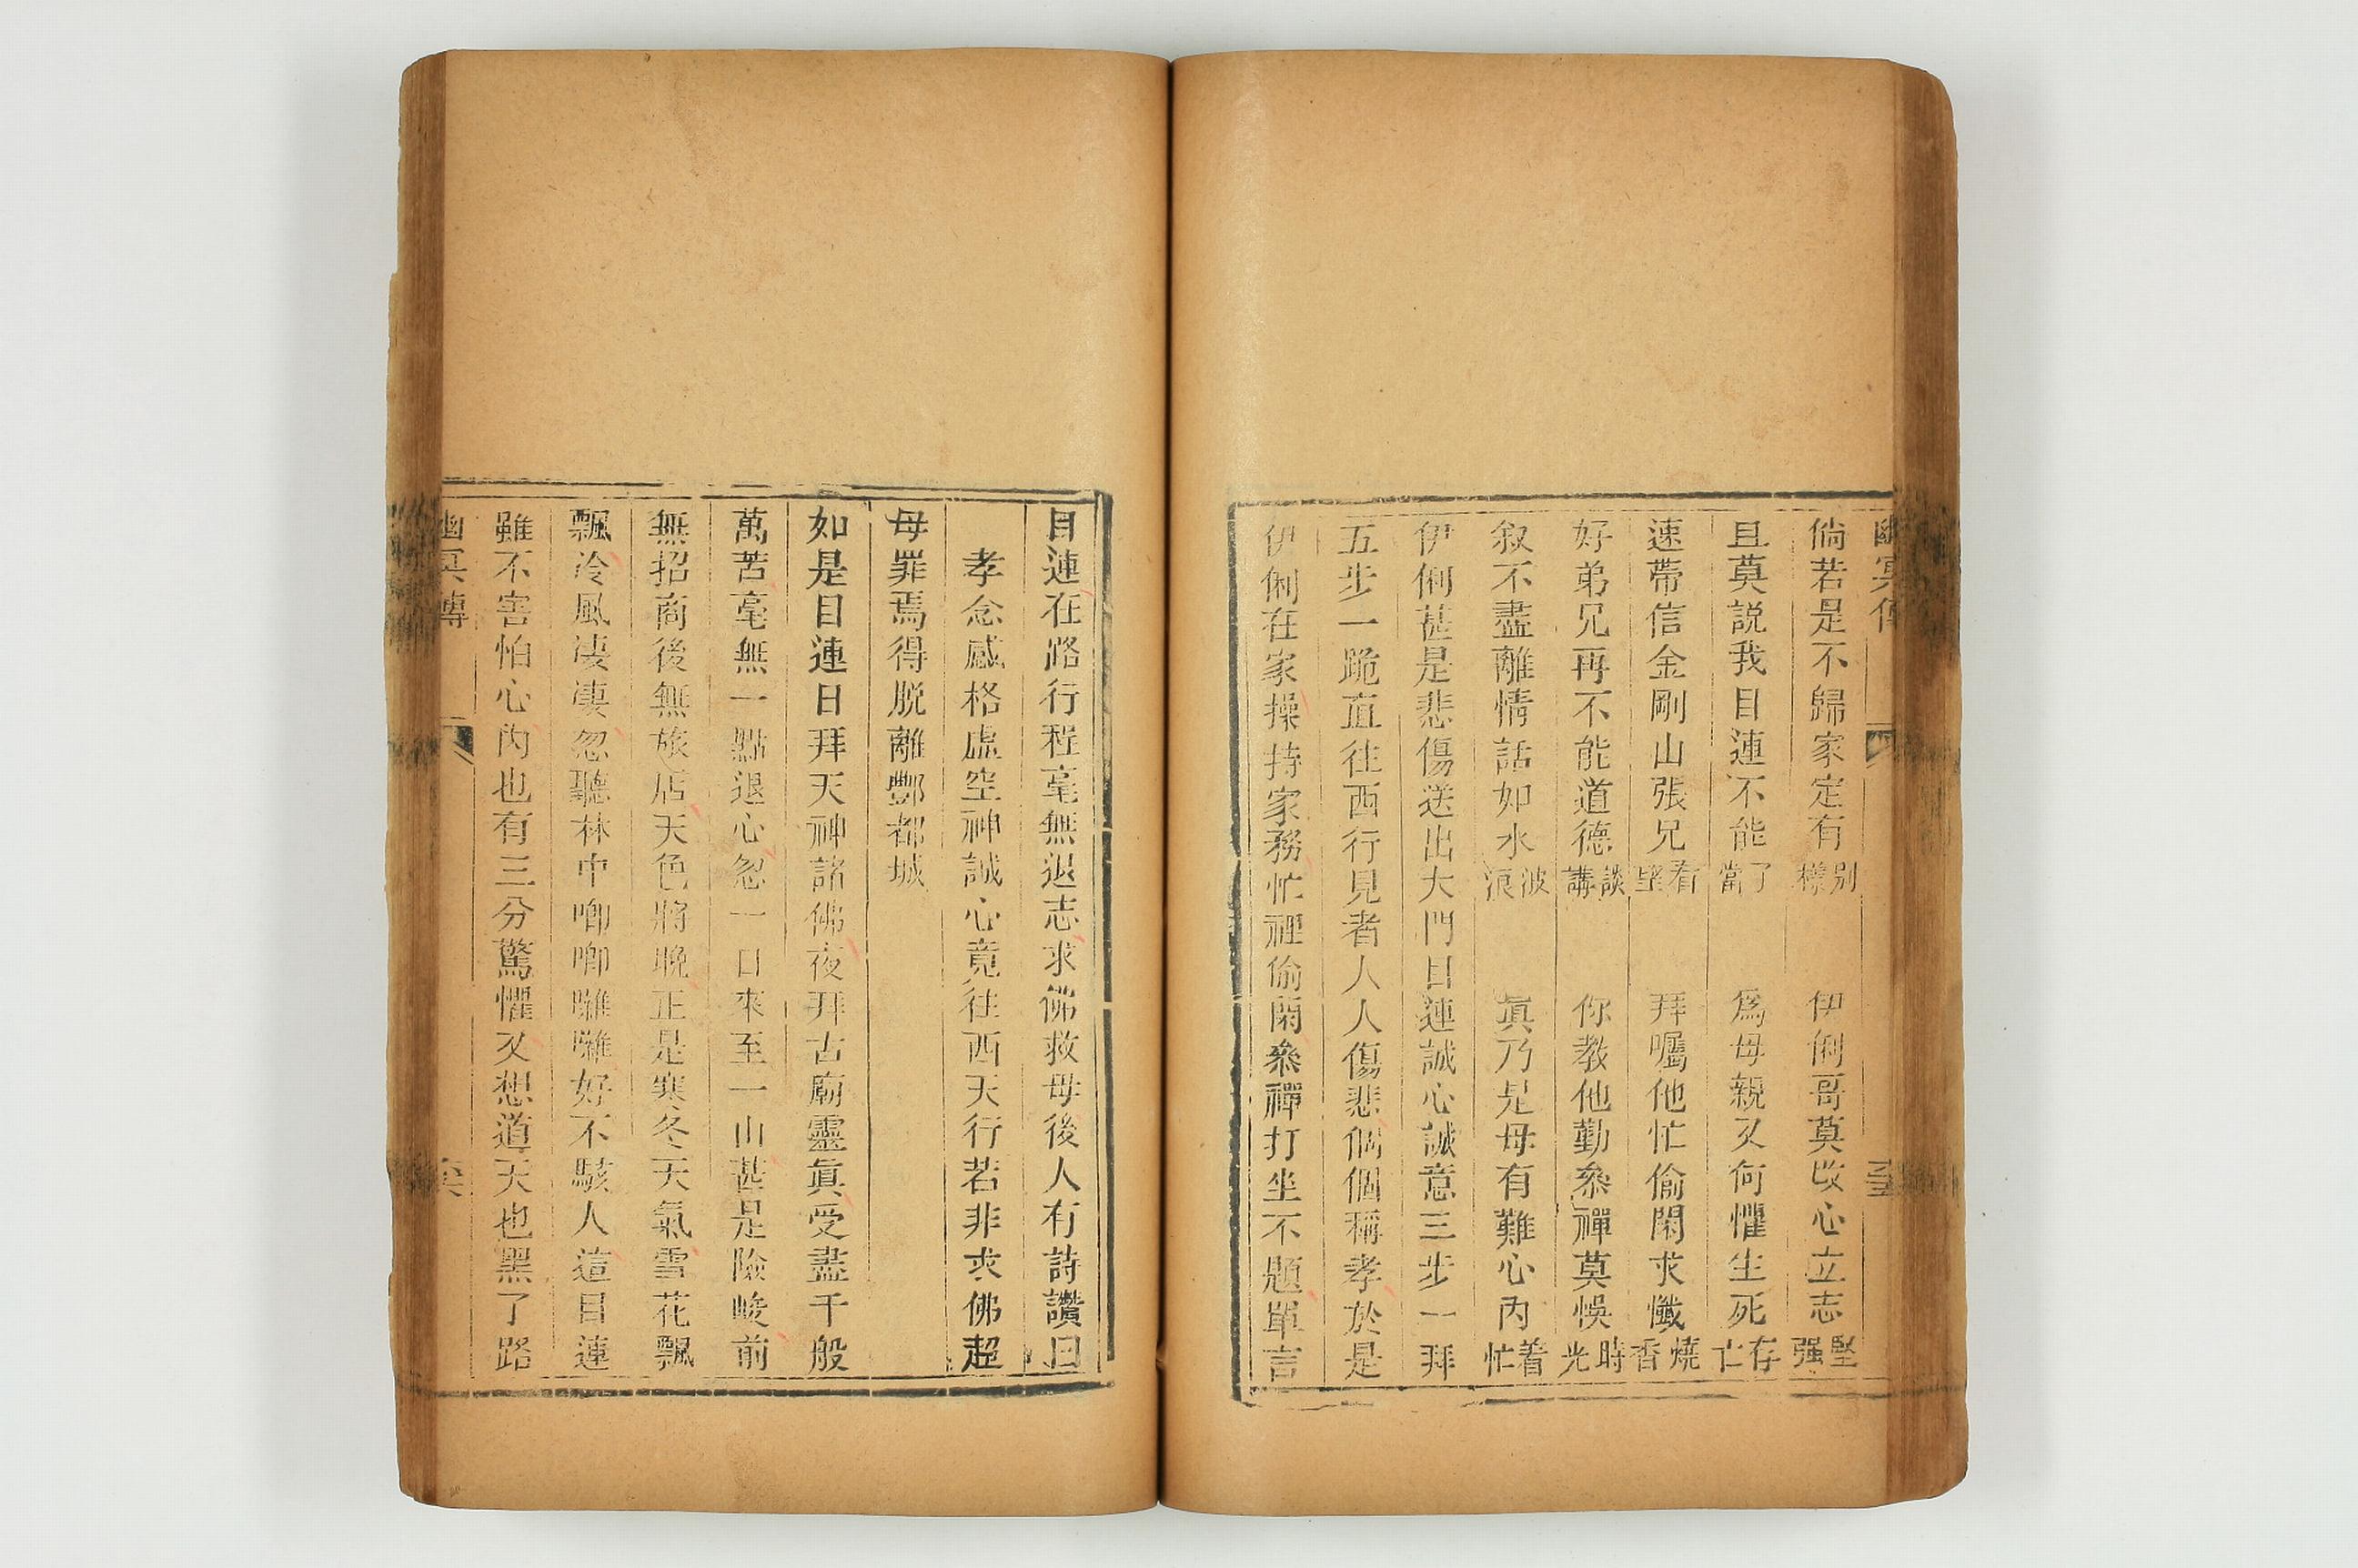 幽冥傳
倘若是不歸家定有別樣　伊俐哥莫改心立志堅强
且莫説我目連不能了當　爲母親又何懼生死存亡
速帶信金剛山張兄看坐　拜囑他忙偷閑求懺燒香
好弟兄再不能道德談講　你教他勤叅禪莫悞時光
叙不盡離情話如水波浪　眞乃是母有難心内着忙
伊俐甚是悲傷送出大門目連誠心誠意三步一拜
五步一跪直往西行見者人人傷悲個個稱孝於是
伊俐在家操持家務忙裡偷閑叅禪打坐不題單言
目連在路行程毫無退志求佛救母後人有詩讚曰
孝念感格虛空神誠心竟往西天行若非求佛超
母罪焉得脱離酆都城
如是目連日拜天神諸佛夜拜古廟靈眞受盡千般
萬苦毫無一點退心忽一日來至一山甚是險峻前
無招商後無旅店天色將晚正是寒冬天氣雪花飄
飄冷風凄凄忽聽林中唧唧囃囃好不駭人這目連
雖不害怕心内也有三分驚懼又想道天也黑了路
幽冥傳